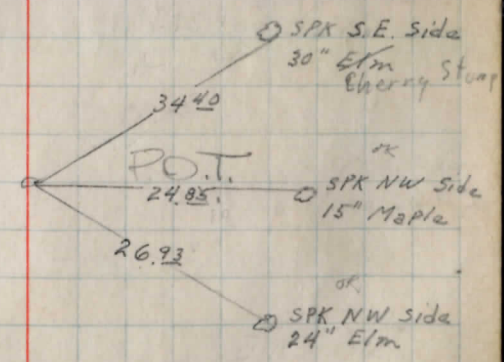 SPK S.E. Side
30" Elm
Cherry Stump
34 40
P.O.T.
OK
SPK NW Side
24.85
15" Maple
26.93
OK
SPK NW Side
24" Elm